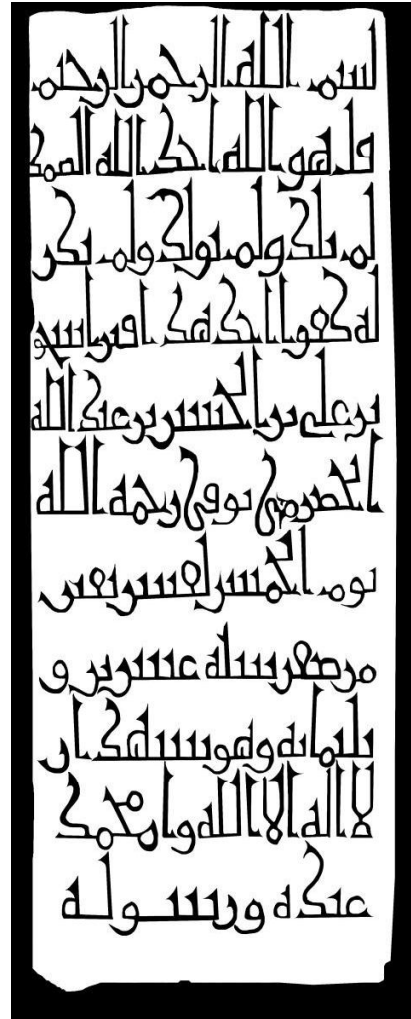 بسم الله الرحمن الرحيم
قل هو الله احد الله الصمد
لم يلد ولم يولد ولم يكن
له كفوا احد هذا قبر اسحق
بن علي بن الحسين بن عبد الله
الحضرمي توفي رحمه الله
يوم الخميس لعشر بقين
من صفر سنة عشرين و
ثلثمائة وهو يشهد ان
لا اله الا الله وان محمد
عبده ورسوله